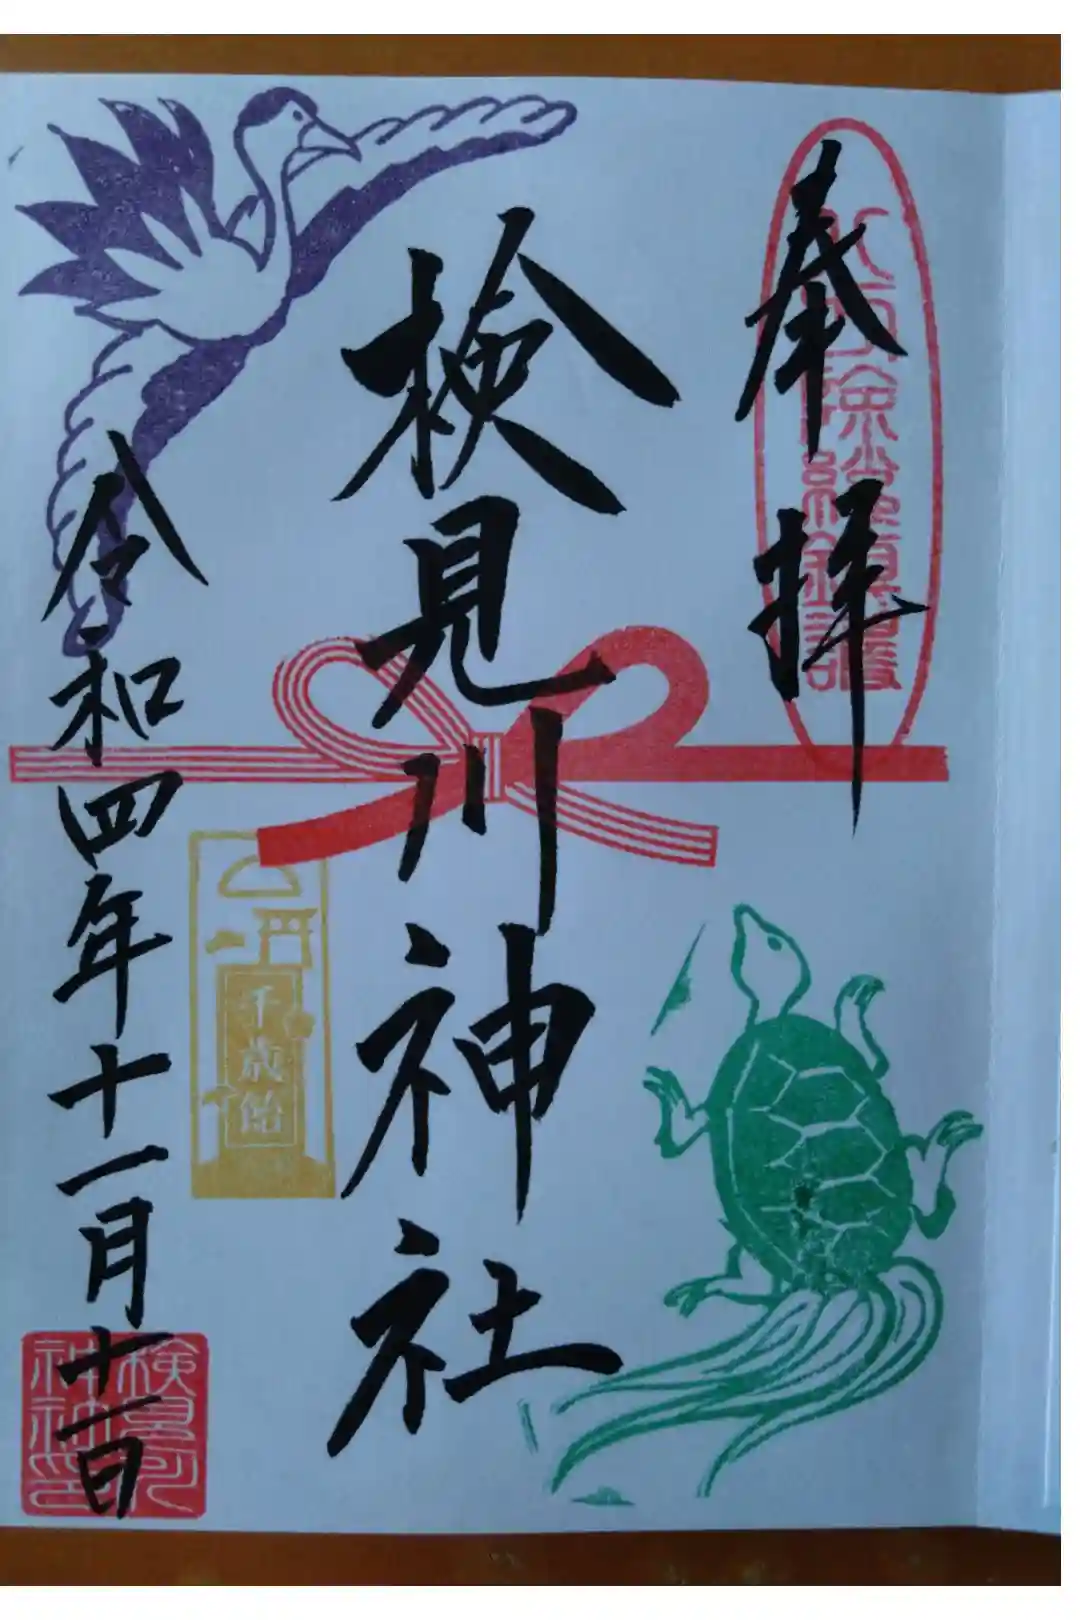 奉拝
検見川神社
千歳飴
令和四年十一月十一日
検見川
神社印